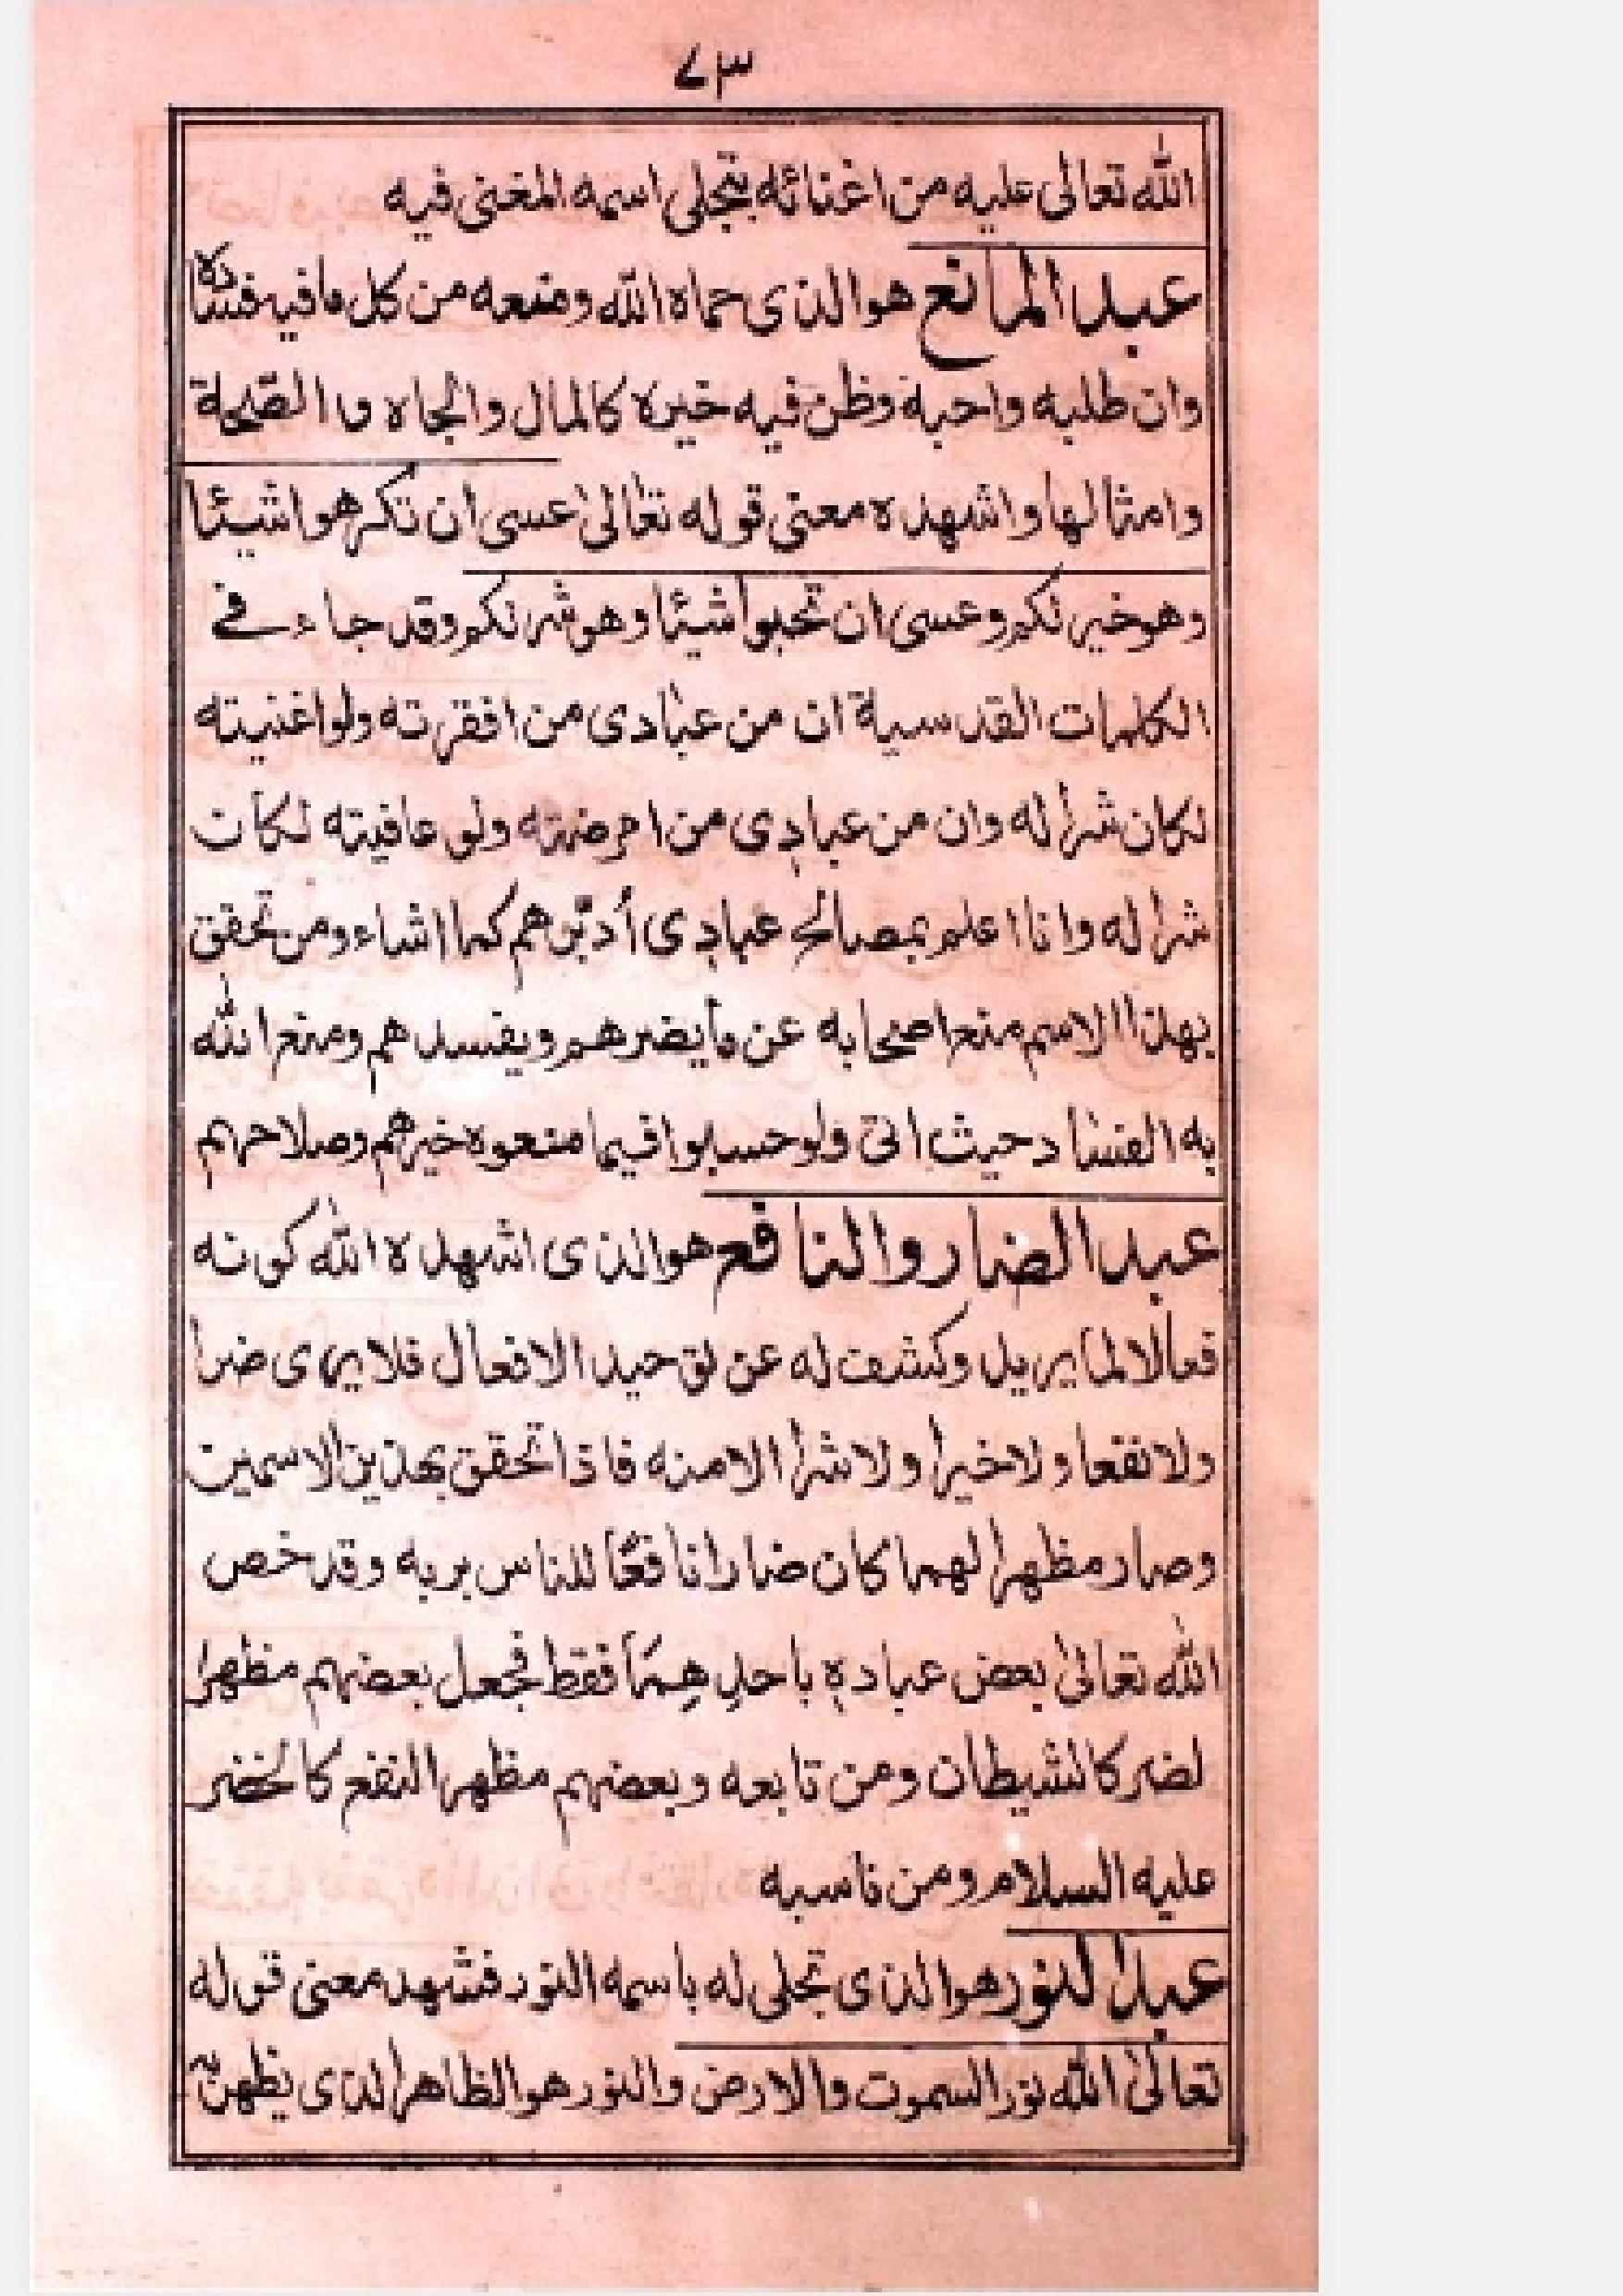 ٧٣
الله تعالى عليه من اغنائه بتجلى اسمه المغنى فيه
عبد المانع هو الذى حماه الله ومنعه من كل ما فيه فساده
وان طلبه واحبه وظن فيه خيره كالمال والجاه والصحة
وامثالها واشهده معنى قوله تعالىٰ عسى ان تكرهوا شيئا
وهو خير لكم وعسى ان تحبوا شيئا وهو شر لكم وقد جاء في
الكلمات القدسية ان من عبادى من افقرته ولو اغنيته
لكان شرا له وان من عبادى من امرضته ولو عافيته لكان
شرا له وانا اعلم بمصالح عبادى أدبّرهم كما اشاء ومن تحقق
بهذا الاسم منع اصحابه عن ما يضرهم ويفسدهم ومنع الله
به الفساد حيث اتى ولو حسبوا فيما منعوه خيرهم وصلاحهم
عبد الضار والنافع هو الذى اشهده الله كونه
فعالا لما يريد وكشف له عن توحيد الافعال فلا يرى ضرا
ولا نفعا ولا خيرا ولا شرا الا منه فاذا تحقق بهذين الاسمين
وصار مظهرا لهما كان ضارا نافعًا للناس بربه وقد خص
الله تعالىٰ بعض عباده باحدهما فقط فجعل بعضهم مظهرا
لضر كالشيطان ومن تابعه وبعضهم مظهرا لنفع كالخضر
عليه السلام ومن ناسبه
عبد النور هو الذى تجلى له باسمه النور فشهد معنى قوله
تعالىٰ الله نور السموت والارض والنور هو الظاهر الذى يظهر به